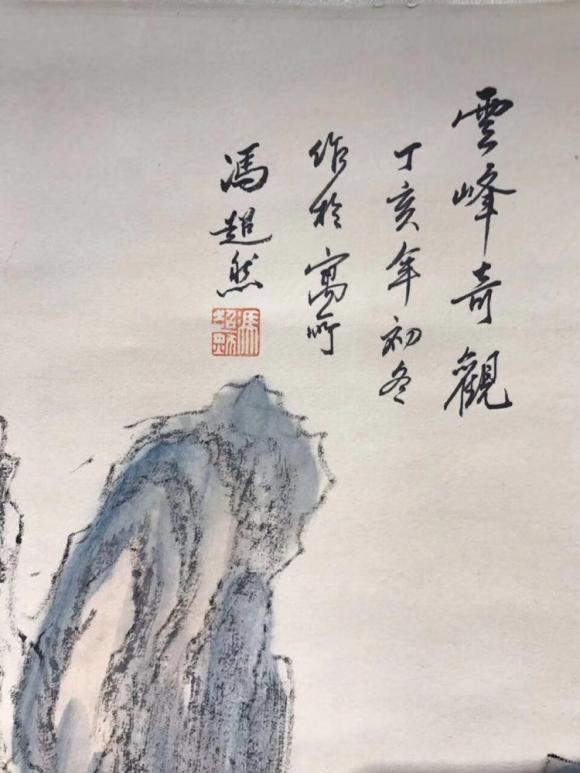 雲峰奇觀
丁亥年初冬
作於寓所
馮超然
馮超然